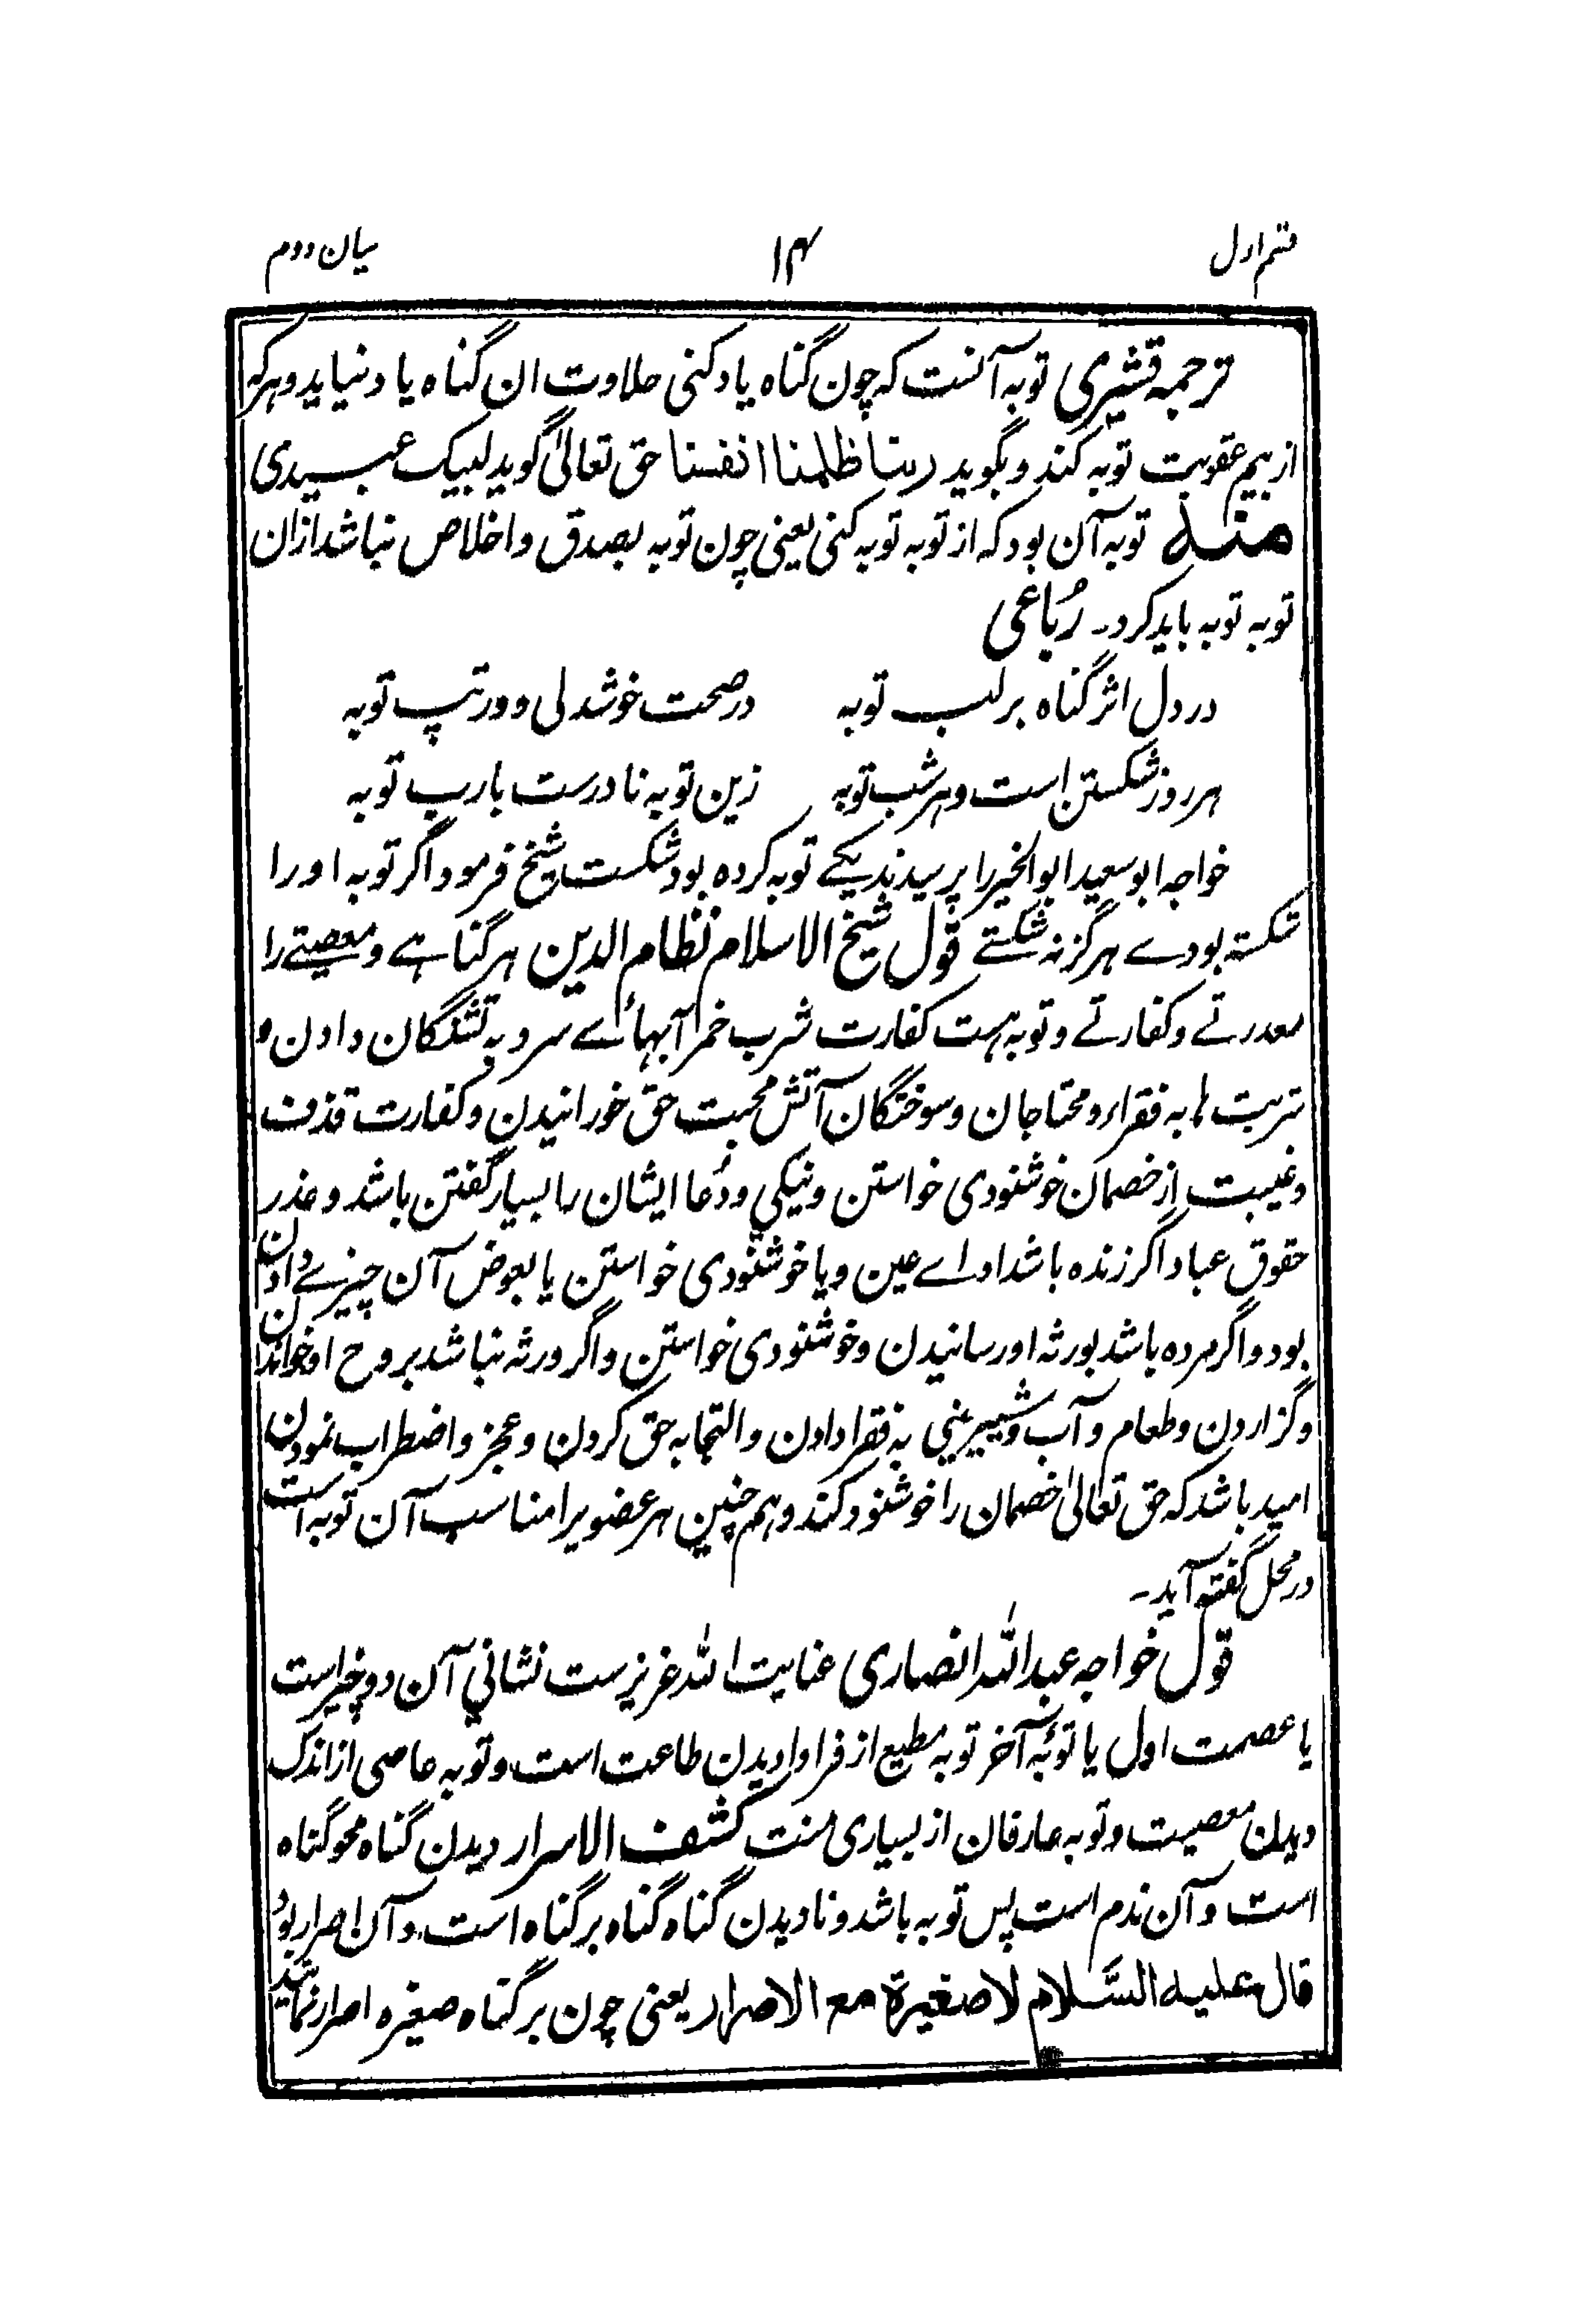 قسم اول
۱۴
بیان دوم
ترجمہ قشیری توبہ آنست کہ چون گناہ یاد کنی حلاوت ان گناہ یاد نیاید و ہرکہ
از بیم عقوبت توبہ کند و بگوید ربنا ظلمنا انفسنا حق تعالیٰ گوید لبیک عبیدی
منہ توبہ آن بود کہ از توبہ توبہ کنی یعنی چون توبہ بصدق و اخلاص نباشد ازان
توبہ توبہ باید کرد۔ رُباعی
در دل اثر گناہ بر لب توبہ در صحت خوشدلی و در تپ توبہ
ہر روز شکستن است و ہر شب توبہ زین توبہ نادرست یارب توبہ
خواجہ ابوسعید ابوالخیر را پرسیدند یکے توبہ کردہ بود شکست شیخ فرمود اگر توبہ او را
شکستہ بودے ہرگز نہ شکستے قول شیخ الاسلام نظام الدین ہر گناہے و معصیتے را
معدرتے و کفارتے و توبہ ہست کفارت شرب خمر آبہائے سرد بہ تشنگان دادن و
شربت ہا بہ فقراء و محتاجان و سوختگان آتش محبت حق خورانیدن و کفارت قذف
و غیبت از خصمان خوشنودی خواستن و نیکی و دُعا ایشان را بسیار گفتن باشد و عذر
حقوق عباد اگر زندہ باشد اداے عین و یا خوشنودی خواستن یا بعوض آن چیزے دادن
بود و اگر مردہ باشد بورثہ او رسانیدن و خوشنودی خواستن و اگر ورثہ نباشد بروح او خواندن
و گزاردن و طعام و آب و شیرینی بہ فقرا دادن و التجا بہ حق کردن و عجز و اضطراب نمودن
امید باشد کہ حق تعالیٰ خصمان را خوشنود کند و ہم چنین ہر عضویرا مناسب آن توبہ است
در محل گفتہ آید۔
قول خواجہ عبداللہ انصاری عنایت اللہ عزیزست نشانی آن دو چیزاست
یا عصمت اول یا توبۂ آخر توبہ مطیع از فراوا دیدن طاعت است و توبہ عاصی از اندک
دیدن معصیت و توبہ عارفان از بسیاری منت کشف الاسرار دیدن گناہ محو گناہ
است و آن ندم است پس توبہ باشد و نادیدن گناہ گناہ بر گناہ است و آن اصرار بود
قال علیہ السَّلام لا صغیرۃ مع الاصرار یعنی چون بر گناہ صغیرہ اصرار نمایند